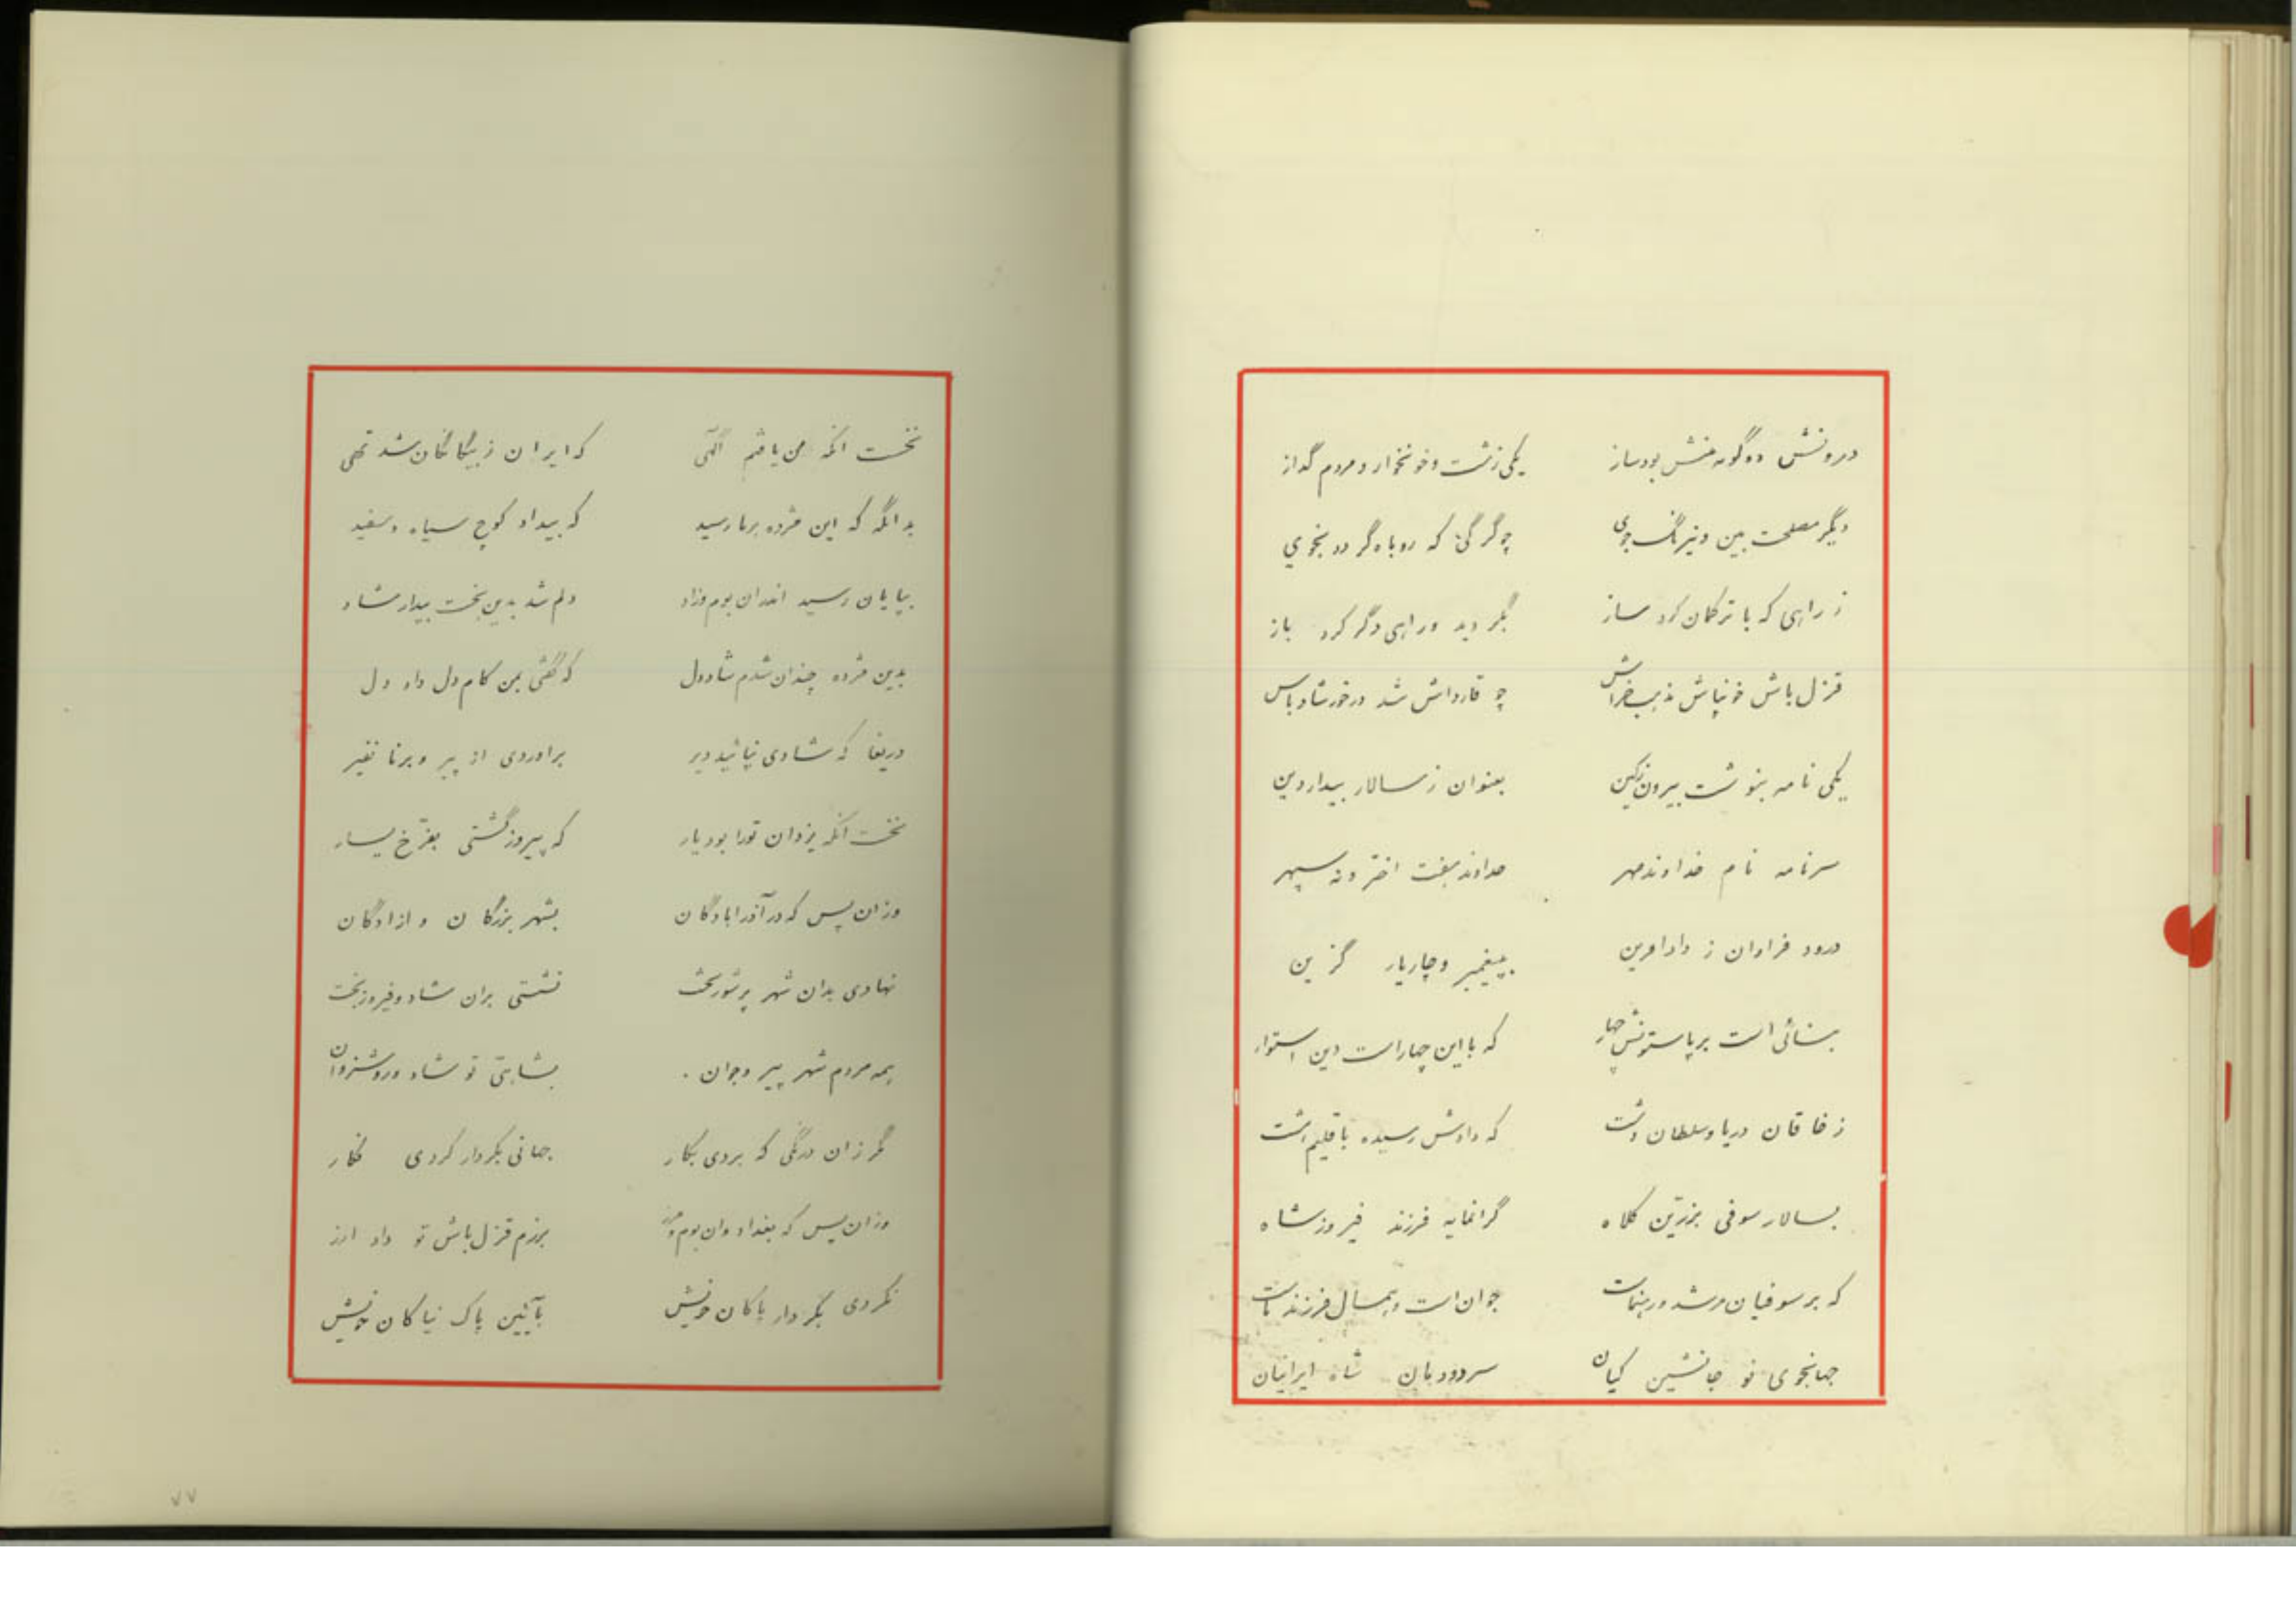 درونش دوگونه منش بود ساز یکی زشت و خونخوار و مردم گداز
دیگر مصلحت بین و نیرنگ جوی چو گرگی که روباه گردد بخوی
ز راهی که با ترکمان کرد ساز بگردید و راهی دگر کرد باز
قزل باش خونپاش مذهب خراش چو قارداش شد در خور شادباس
یکی نامه بنوشت بیرون ز کین بعنوان ز سالار بیدار دین
سرنامه نام خداوند مهر خداوند هفت اختر و نه سپهر
درود فراوان ز دادافرین بپیغمبر و چاریار گزین
بنائی است برپا ستونش چهار که با این چهار است دین استوار
ز خاقان دریا و سلطان دشت که دادش رسیده باقلیم هشت
بسالار سوفی بزرّین کلاه گرانمایه فرزند فیروز شاه
که بر سوفیان مرشد و رهنماست جوان است و همسال فرزند ماست
جهانجوی نو جانشین کیان سر دودمان شاه ایرانیان
نخست انکه من یافتم آگهی که ایران ز بیگانگان شد تهی
بدانگه که این مژده برما رسید که بیداد کوچ سیاه و سفید
بپایان رسید اندران بوم و زاد دلم شد بدین بخت بیدار شاد
بدین مژده چندان شدم شاددل که گفتی بمن کام دل داد دل
دریغا که شادی نپائید دیر براوردی از پیر و برنا نفیر
نخست آنکه یزدان تورا بود یار که پیروز گشتی بفرّخ یسار
وزان پس که در آذرابادگان بشهر بزرگان و ازادگان
نهادی بدان شهر پرشور تخت نشستی بران شاد و فیروزبخت
همه مردم شهر پیر و جوان . بشاهی تو شاد و روشنروان
گر زان درنگی که بردی بکار جهانی بکردار کردی نگار
وزان پس که بغداد وان بوم و مرز برزم قزل باش تو داد ارز
نکردی بکردار پاکان خویش بآیین پاک نیاکان خویش
۷۷